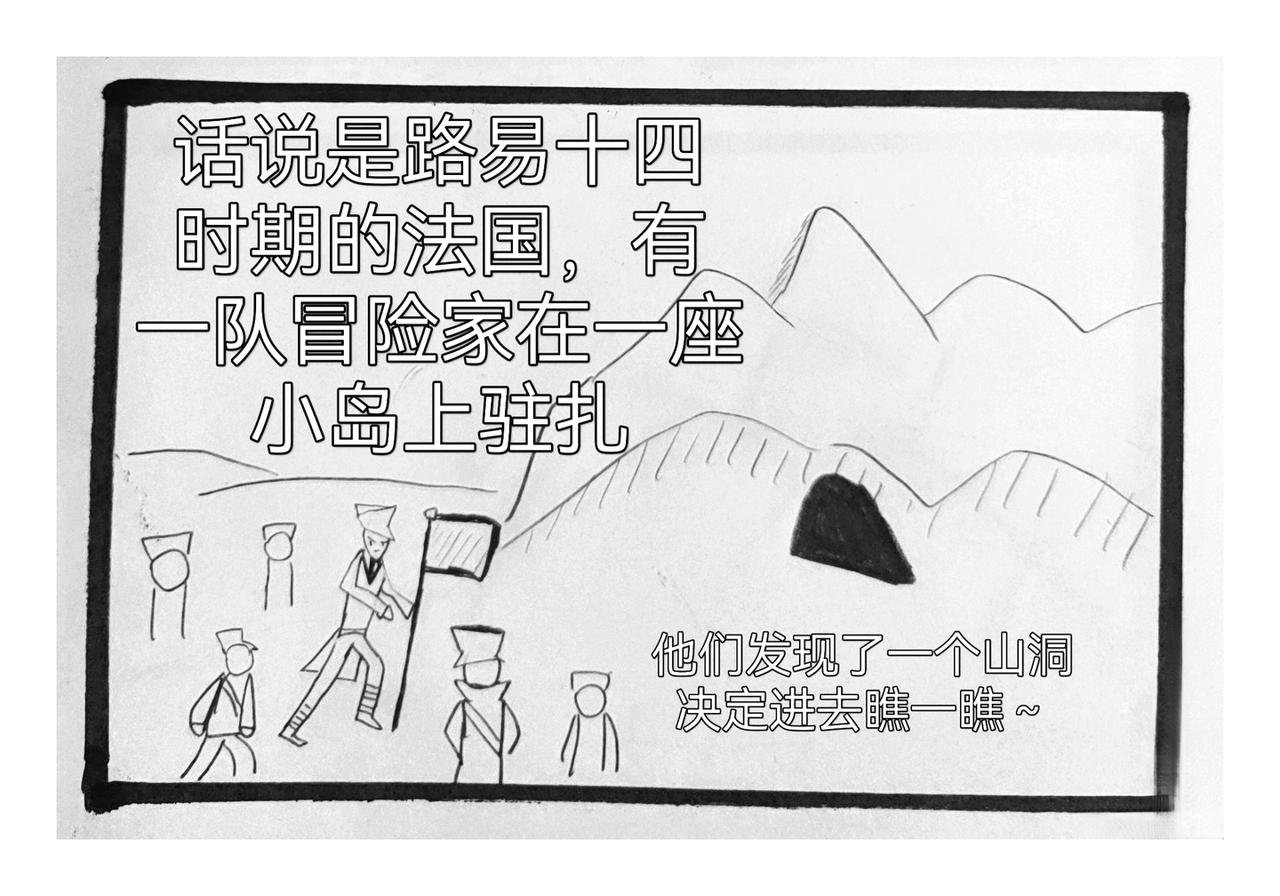 话说是路易十四
时期的法国，有
一队冒险家在一座
小岛上驻扎
他们发现了一个山洞
决定进去瞧一瞧～